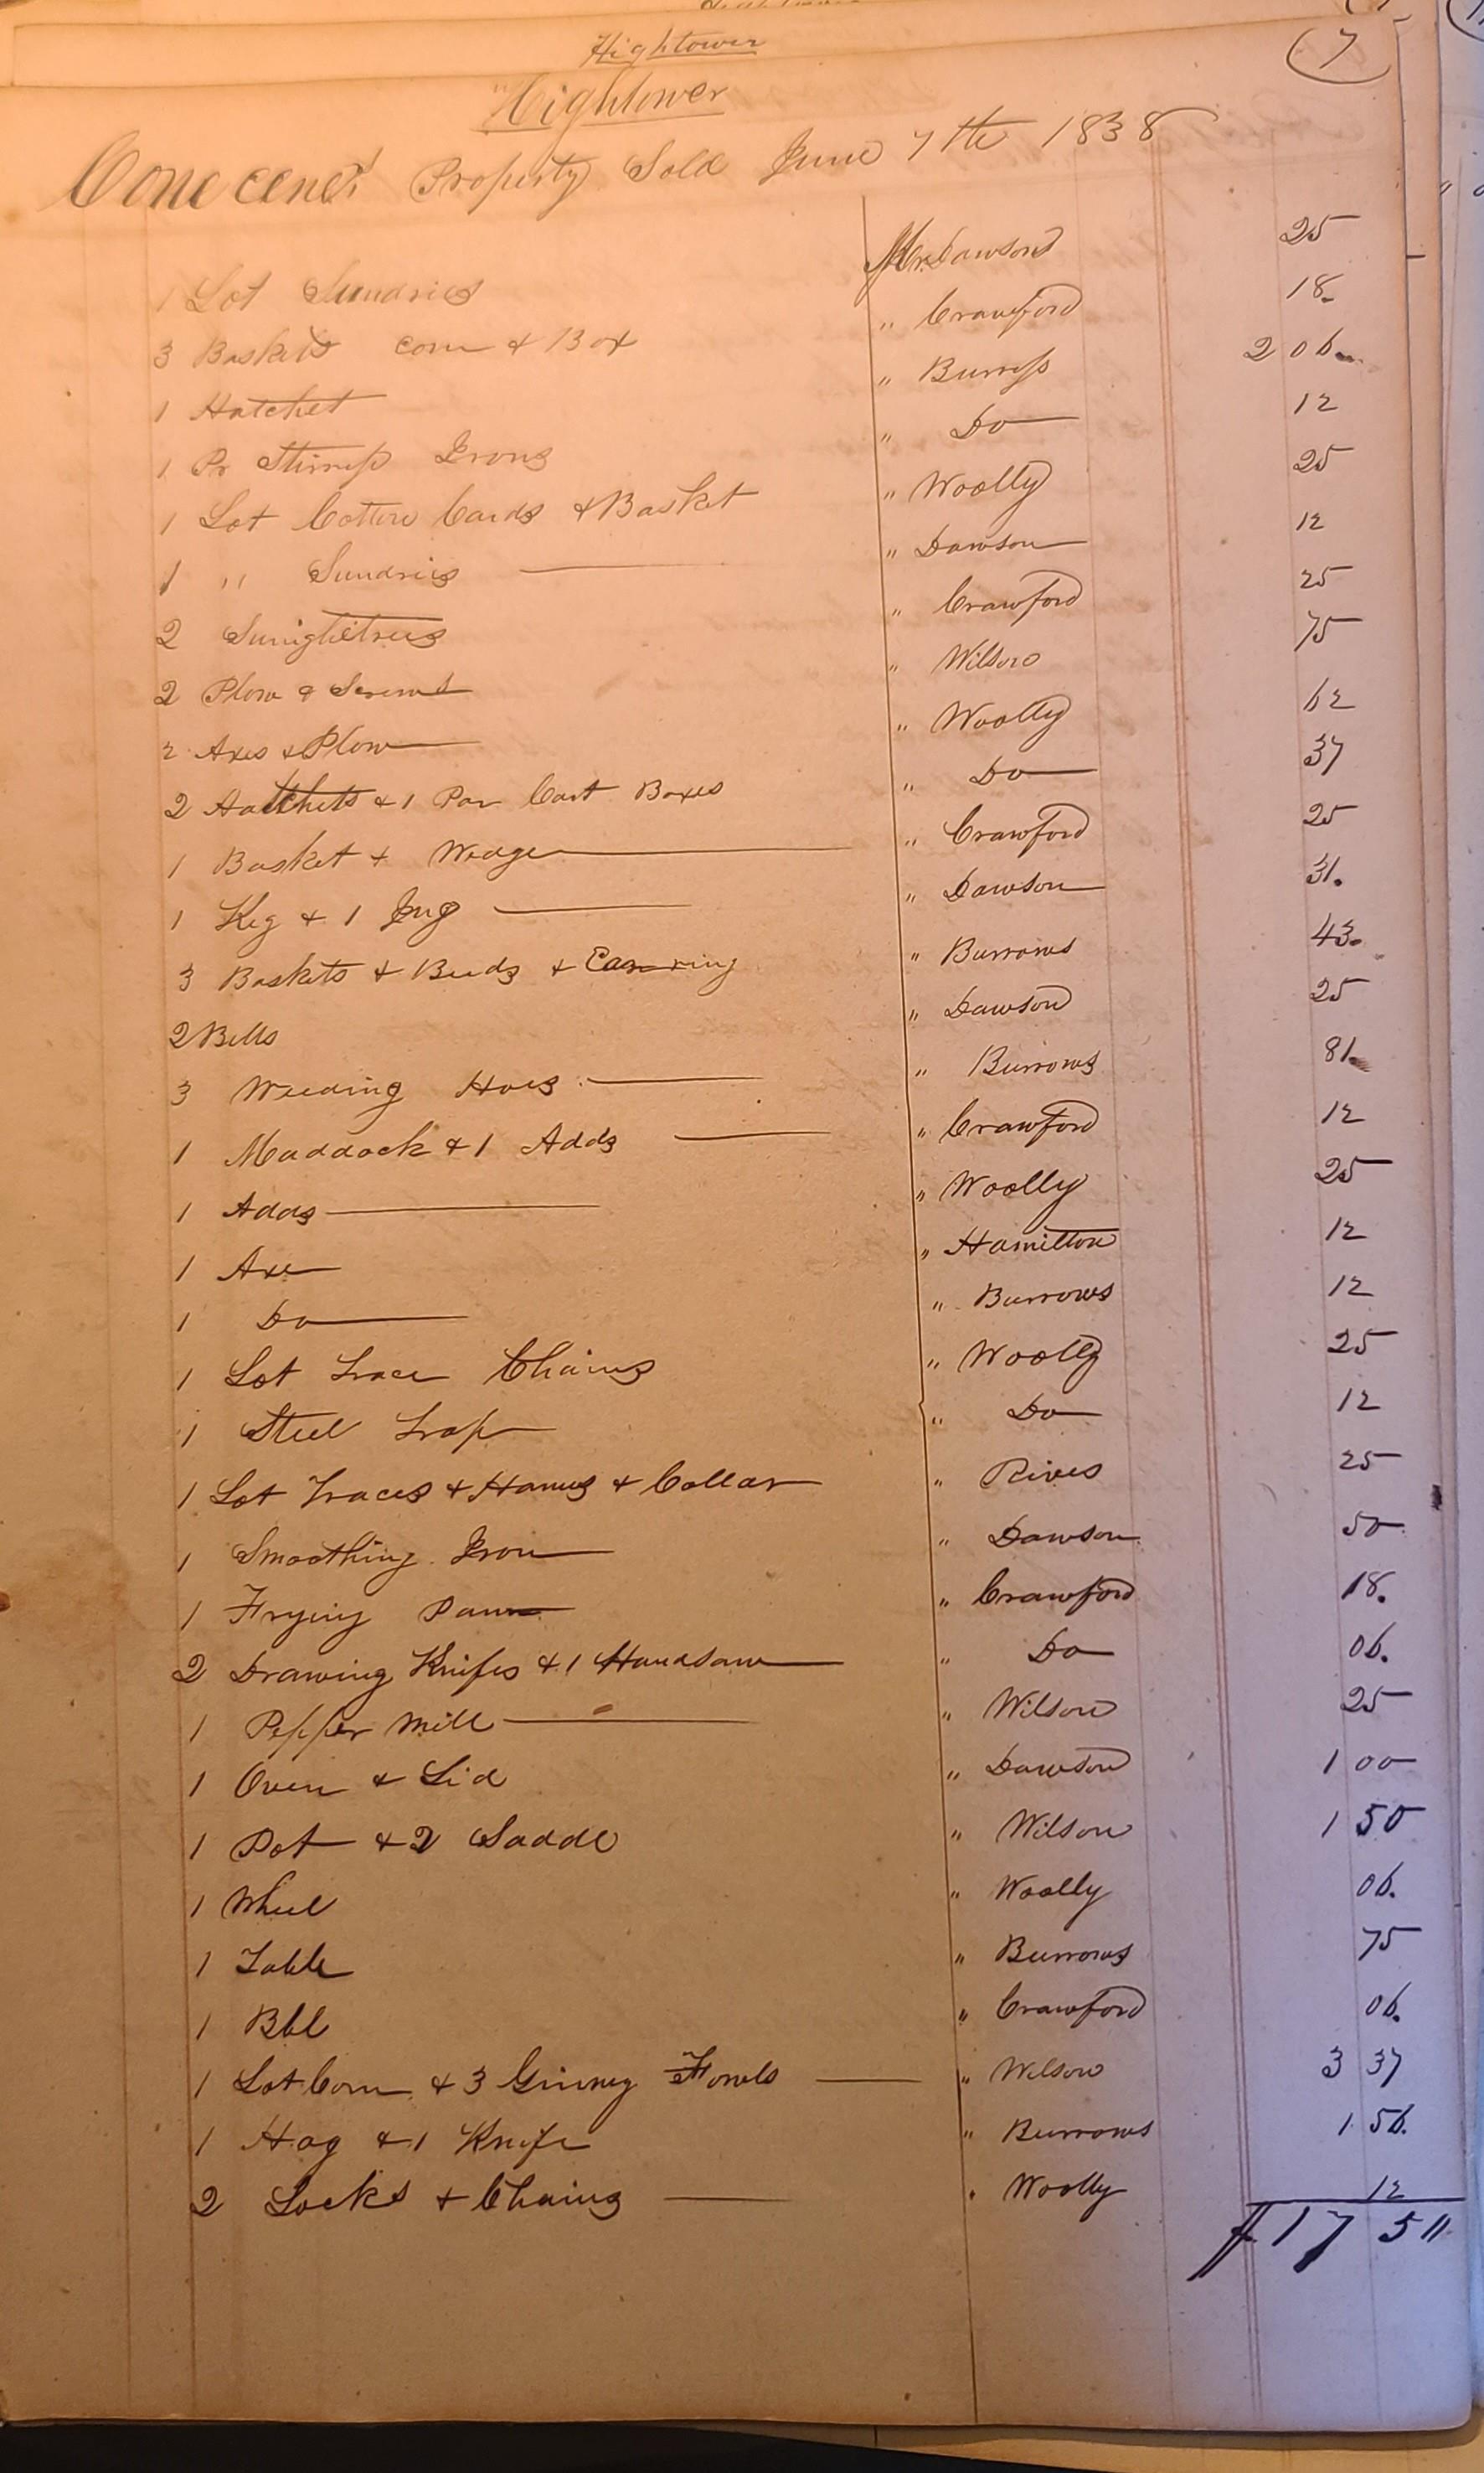 Hightower
(7
"Hightower
Conecene's Property Sold June 7th 1838
1 Lot Sundries Mr. Dawson 25
3 Baskets corn & Box " Crawford 18.
1 Hatchet " Burrss 2 06
1 Pr Stirrup Irons " Do 12
1 Lot Cotton Cards & Basket " Woolly 25
1 " Sundries " Dawson 12
2 " Crawford 25
2 Plow & Screws " Wilson 75
2 Axes & Plow " Woolly 62
2 Hatchets & 1 Par Cart Boxes " Do 37
1 Basket & Wedge " Crawford 25
1 Keg & 1 Jug " Dawson 31.
3 Baskets & Beeds & Earring " Burrows 43.
2 Bells " Dawson 25
3 Weeding Hoes " Burrows 81
1 Maddock & 1 Adds " Crawford 12
1 Adds " Woolly 25
1 Axe " Hamilton 12
1 Do " Burrows 12
1 Lot Trace Chains " Woolly 25
1 Steel Trap " Do 12
1 Lot Traces & Hames & Collar " Rives 25
1 Smoothing Iron " Dawson 50
1 Frying Pann " Crawford 18.
2 Drawing Knifes & 1 Handsaw " Do 06.
1 Pepper Mill " Wilson 25
1 Oven & Lid " Dawson 1 00
1 Pot & 2 Saddl " Wilson 1 50
1 Wheel " Woolly 06.
1 Table " Burrows 75
1 Bbl " Crawford 06.
1 Lot Corn & 3 Ginney Fowls " Wilson 3 37
1 Hog & 1 Knife " Burrows 1 56.
2 Locks & Chains " Woolly 12
$17 511